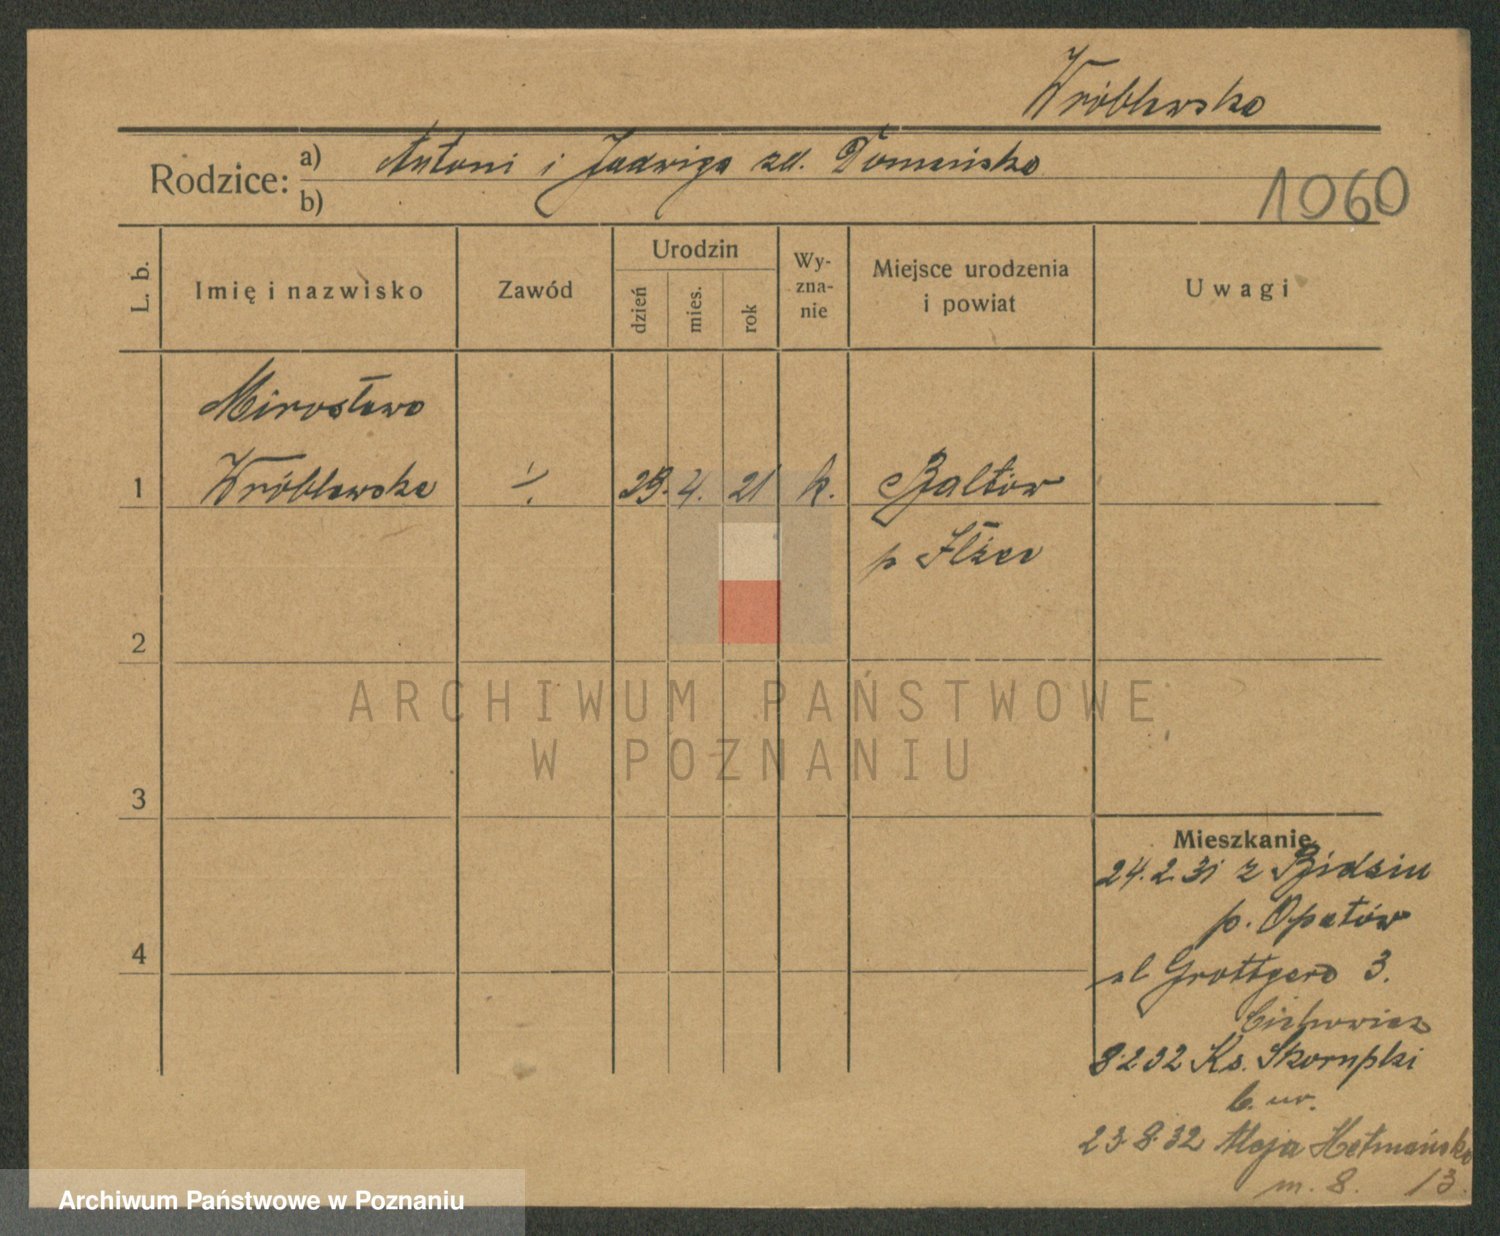 Wróblewska
Rodzice: a) Antoni i Jadwiga zd. Domańska
b)
1060
L. b.
Imię i nazwisko
Zawód
Urodzin
dzień
mies.
rok
Wy-
zna-
nie
Miejsce urodzenia
i powiat
Uwagi
Mirosława
1 Wróblewska 23. 4. 21 k. Bałtów
p Iłża
2
ARCHIWUM PAŃSTWOWE
W POZNANIU
3
Mieszkanie
24.2.31 z
p. Opatów
4
ul Grottgera 3.
Cichowicz
8.2.32 Ks. Skorupki
23.8.32 Aleja Hetmańska
m. 8. 13.
Archiwum Państwowe w Poznaniu